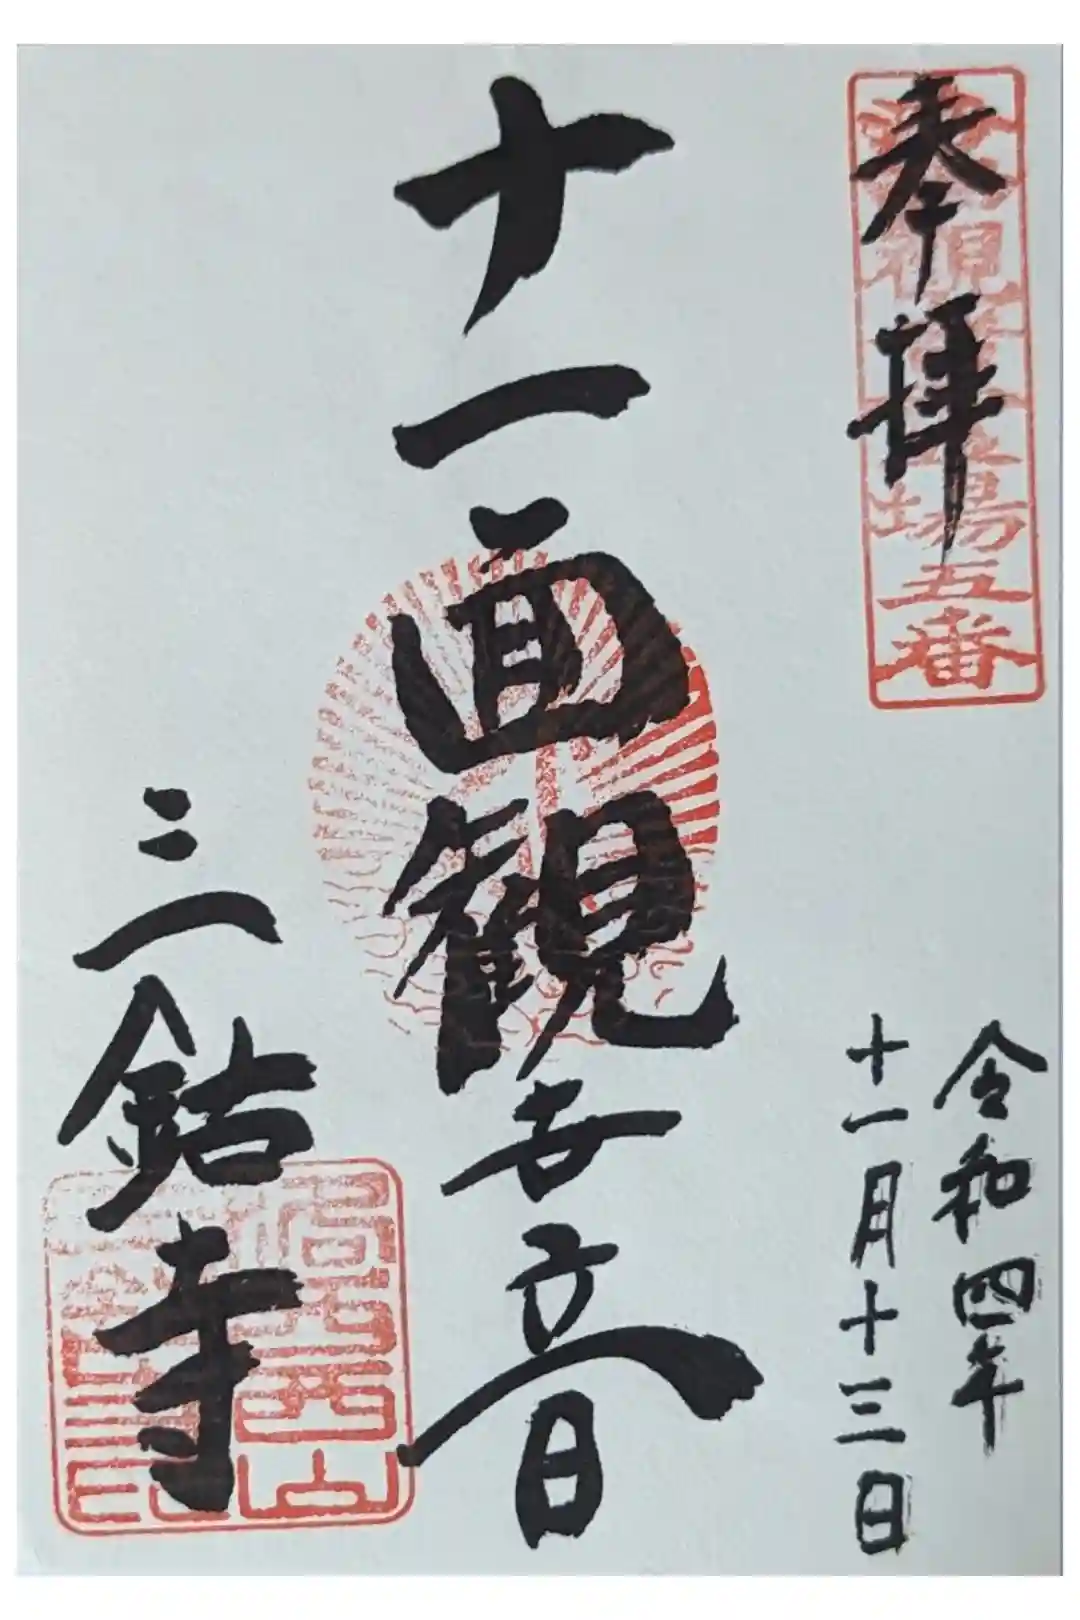 奉拝
洛西観音霊場五番
十一面観世音
三鈷寺
令和四年
十一月十三日